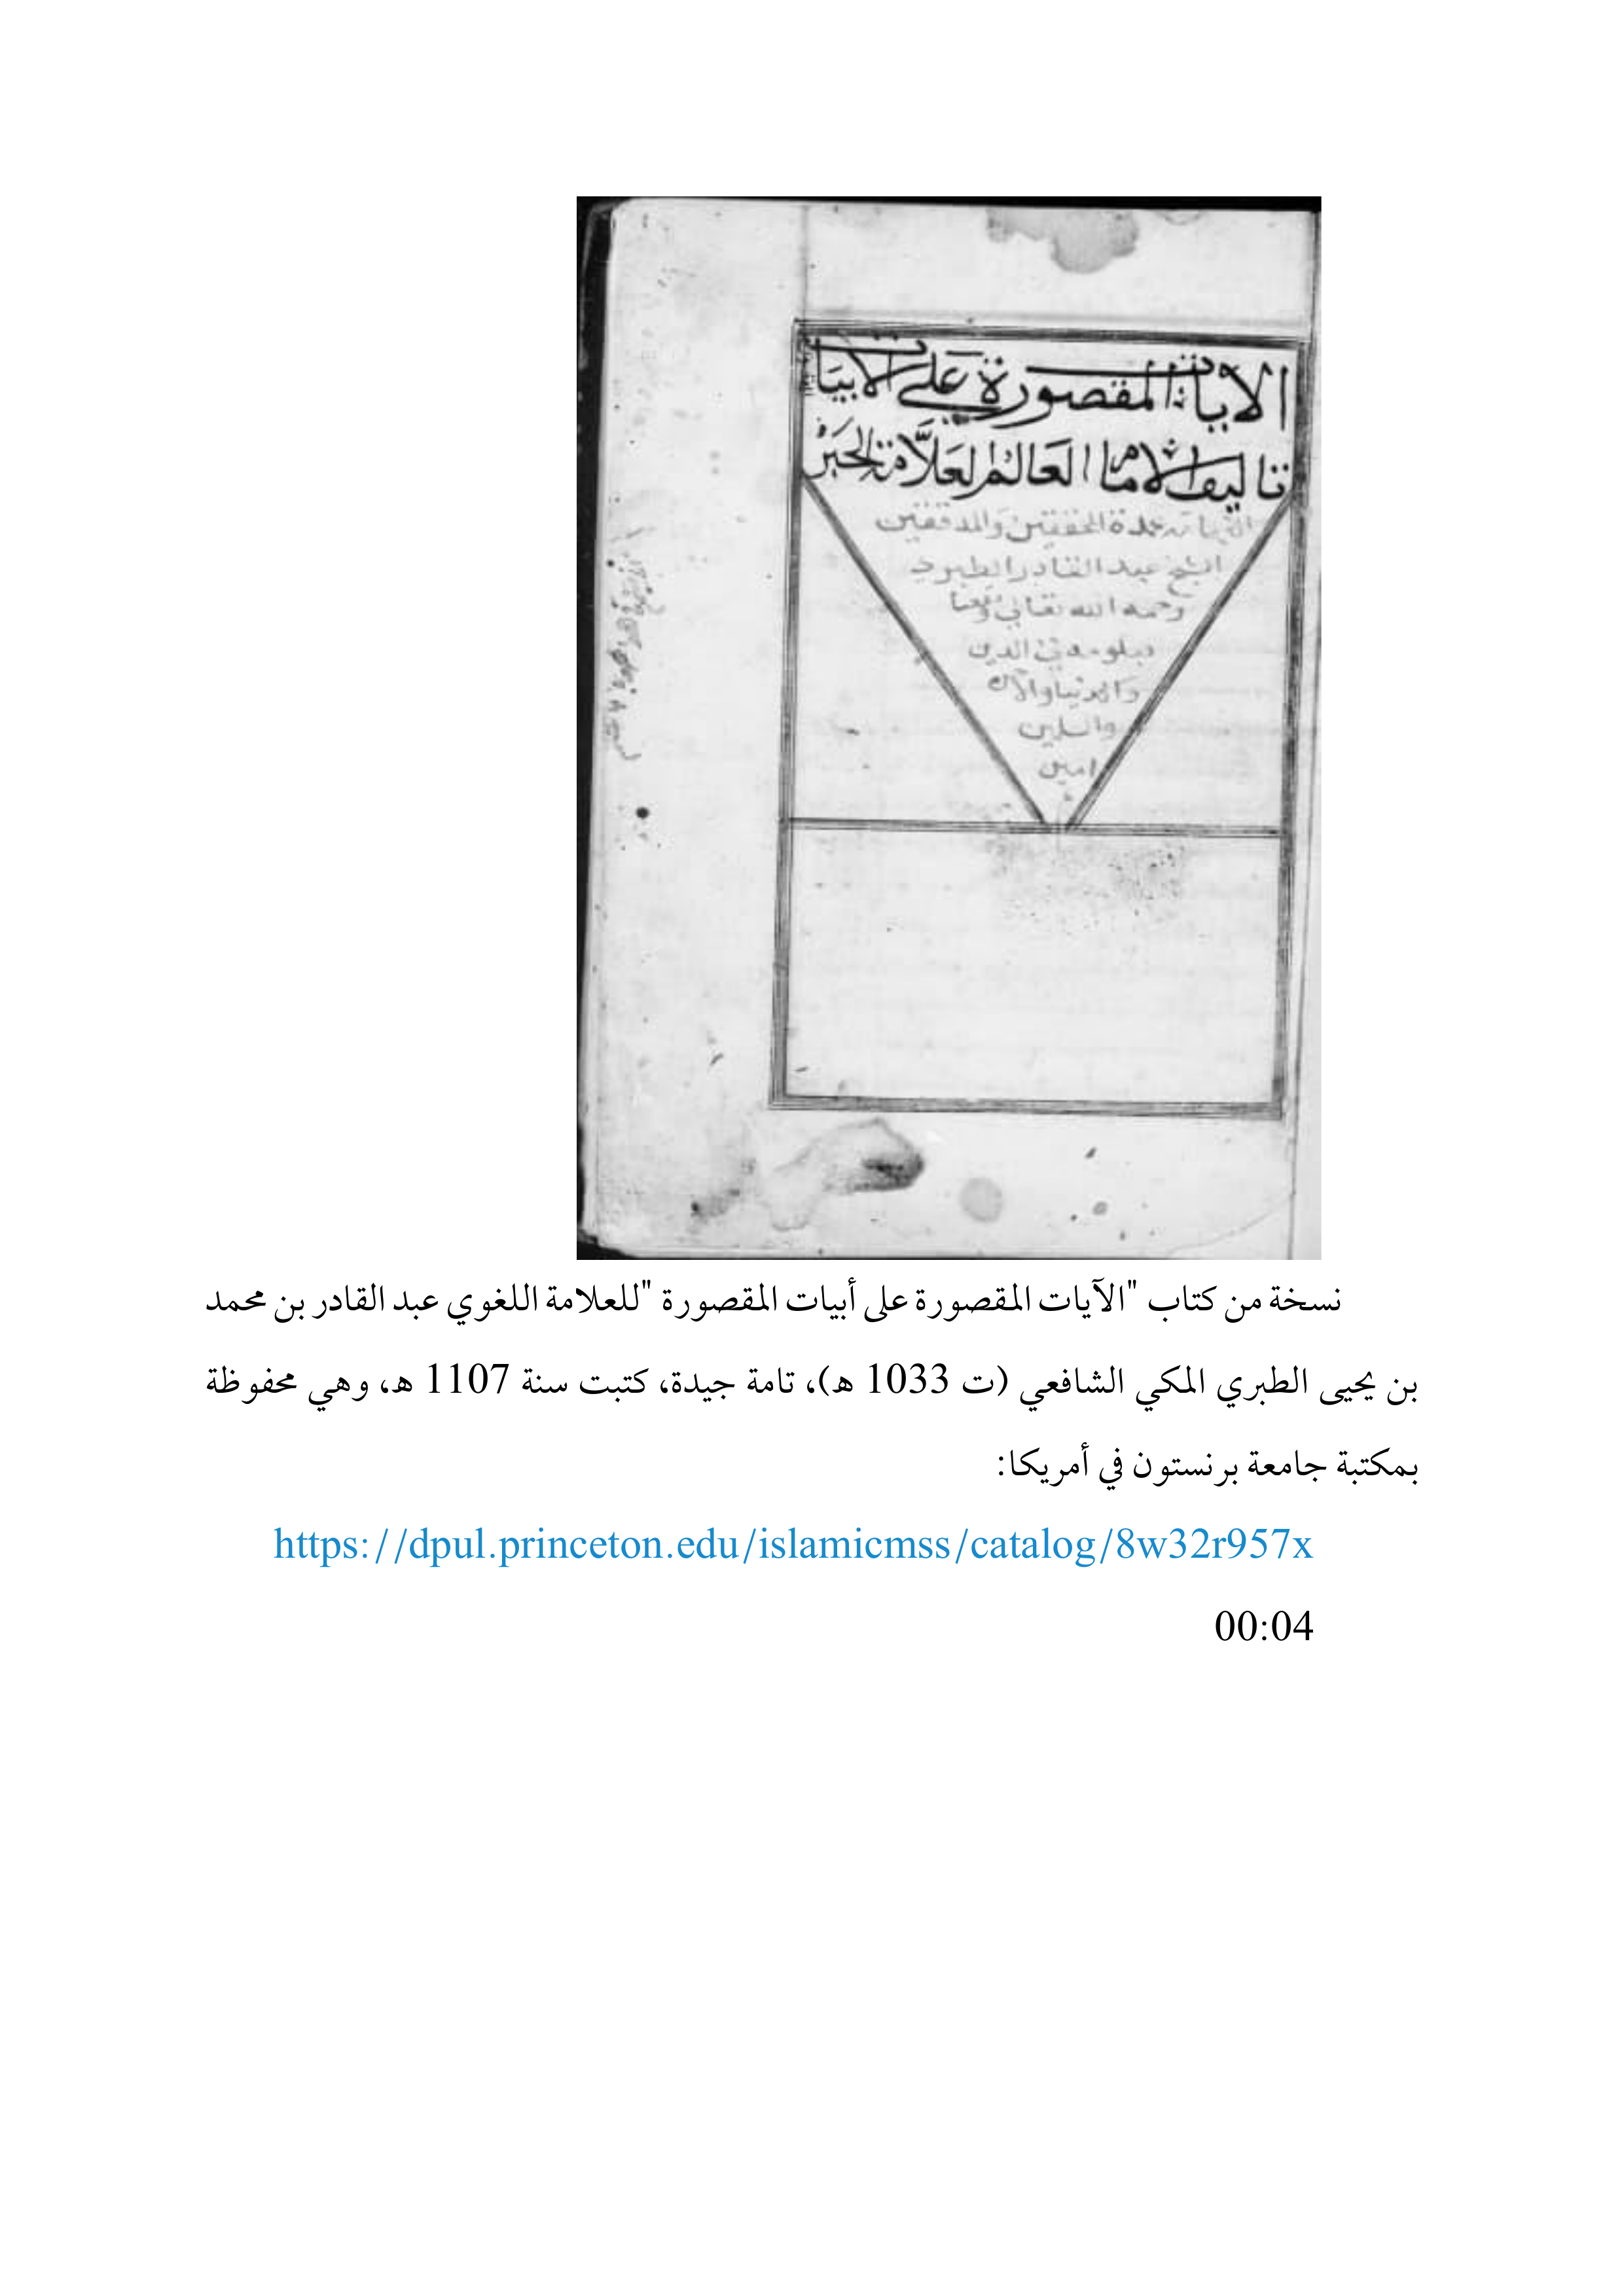 الايات المقصورة على الابيات
تاليف الامام العالم العلامة الحبر
عمدة المحققين والمدققين
الشيخ عبد القادر الطبري
رحمه الله تعالى ونفعنا
بعلومه في الدين
والدنيا والاخرة
والمسلمين
امين
نسخة من كتاب "الآيات المقصورة على أبيات المقصورة "للعلامة اللغوي عبد القادر بن محمد
بن يحيى الطبري المكي الشافعي (ت 1033 ه)، تامة جيدة، كتبت سنة 1107 ه، وهي محفوظة
بمكتبة جامعة برنستون في أمريكا:
https://dpul.princeton.edu/islamicmss/catalog/8w32r957x
00:04